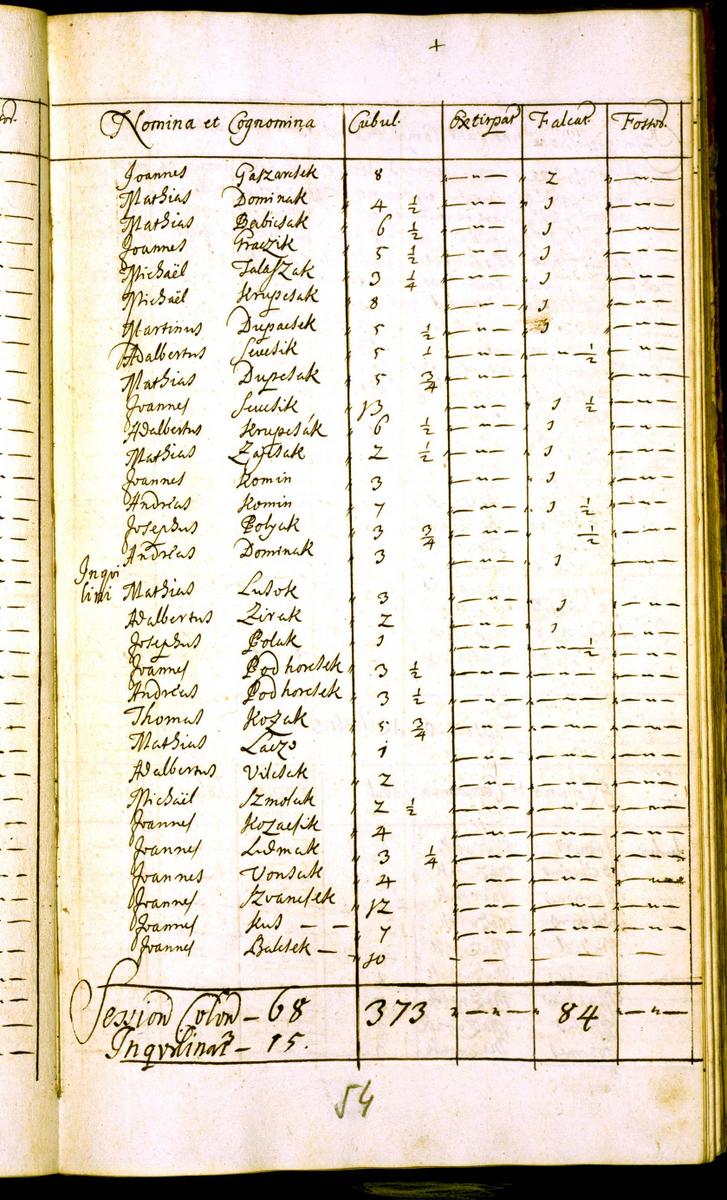 +
Nomina et Cognomina Cubul. Extirpat. Falcat. Fossor.
Joannes Gaszarcsek 8 2
Mathias Dominak 4 ½ 1
Mathias Babicsak 6 ½ 1
Joannes Graczik 5 ½ 1
Michaël Talaszak 3 ¼ 1
Michaël Krupcsak 8 1
Martinus Dupacsek 5 ½ 1
Adalbertus 5 ½
Mathias Dupcsak 5 ¾
Joannes 13 1 ½
Adalbertus Krupcsák 6 ½ 1
Mathias Zajcsak 2 ½ 1
Joannes Komin 3 1
Andreas Komin 7 1 ½
Josephus Bolyak 3 ¾ ½
Andreas Dominak 3 1
Inqvi
lini
Mathias Lusok 3 1
Adalbertus Zirak 2 1
Josephus Polak 1 ½
Joannes Podhorcsek 3 ½
Andreas Podhorcsek 3 ½
Thomas Kozak 5 ¾
Mathias Laczo 1
Adalbertus Vilcsek 2
Michaël Szmolak 2 ½
Joannes Kozacsik 4
Joannes Ludmak 3 ¼
Joannes Vonsak 4
Joannes Szvancsek 12
Joannes Kus 7
Joannes Balcsek 10
Session Colon – 68 373 84
Inqvilinar – 15.
54